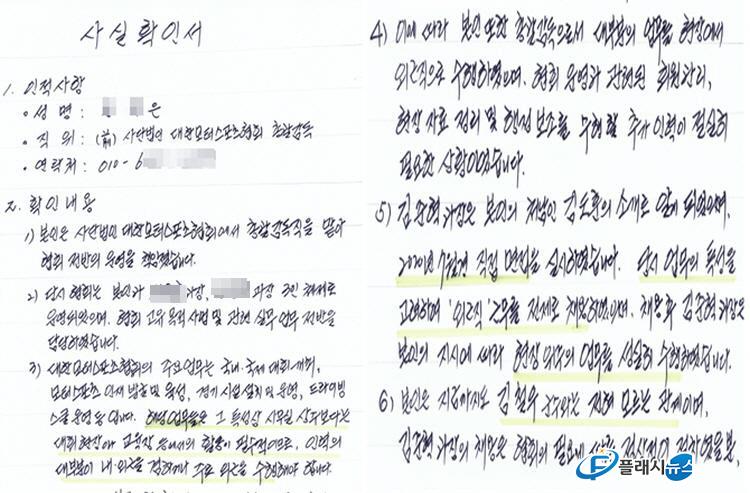 사실확인서
1. 인적사항
• 성 명 : 은
• 직 위 : (前) 사단법인 대한모터스포츠협회 총괄감독
• 연락처 : 010-6
2. 확인내용
1) 본인은 사단법인 대한모터스포츠협회에서 총괄감독직을 맡아
협회 전반의 운영을 책임졌습니다.
2) 당시 협회는 본인과 과장, 과장 3인 체제로
운영되었으며, 협회 고유 목적 사업 및 관련 실무 업무 전반을
담당하였습니다.
3) 대한모터스포츠협회의 주요업무는 국내·국제 대회 개최,
모터스포츠 인재 발굴 및 육성, 경기 시설 설치 및 운영, 드라이빙
스쿨 운영 등입니다. 해당 업무들은 그 특성상 사무실 상주보다는
대회 현장이나 교육장 등에서의 활동이 필수적이므로, 인력의
대부분이 내·외근을 겸하며 주로 외근을 수행해야 합니다.
4) 이에 따라 본인 또한 총괄감독으로서 대부분의 업무를 현장에서
외근직으로 수행하였으며, 협회 운영과 관련된 회원관리,
현장 자료 정리 및 행정 보조를 수행할 추가 인력이 절실히
필요한 상황이었습니다.
5) 김주현 과장은 본인의 채범인 김도훈의 소개로 알게 되었으며,
2020년 7월경 직접 면접을 실시하였습니다. 당시 업무의 특성을
고려하여 '외근직' 근무를 전제로 채용하였으며, 채용 후 김주현 과장은
본인의 지시에 따라 현장 위주의 업무를 성실히 수행하였습니다.
6) 본인은 지금까지도 김철우 군수와는 전혀 모르는 관계이며,
김주현 과장의 채용은 협회의 필요에
플래시뉴스